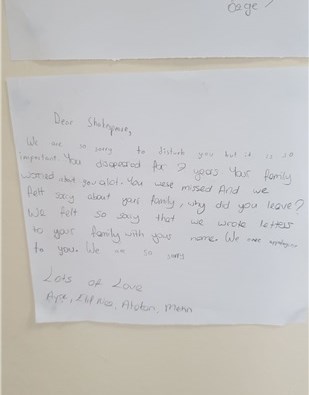 page?
Dear Shakespeare,
We are so sorry to disturb you but it is so
important. You disappeared for 7 years Your family
worried about you alot. You were missed And we
felt sorry about your family, why did you leave?
We felt so sorry that we wrote letters
to your family with your name. We apologise
to you. We are so sorry
Lots of Love